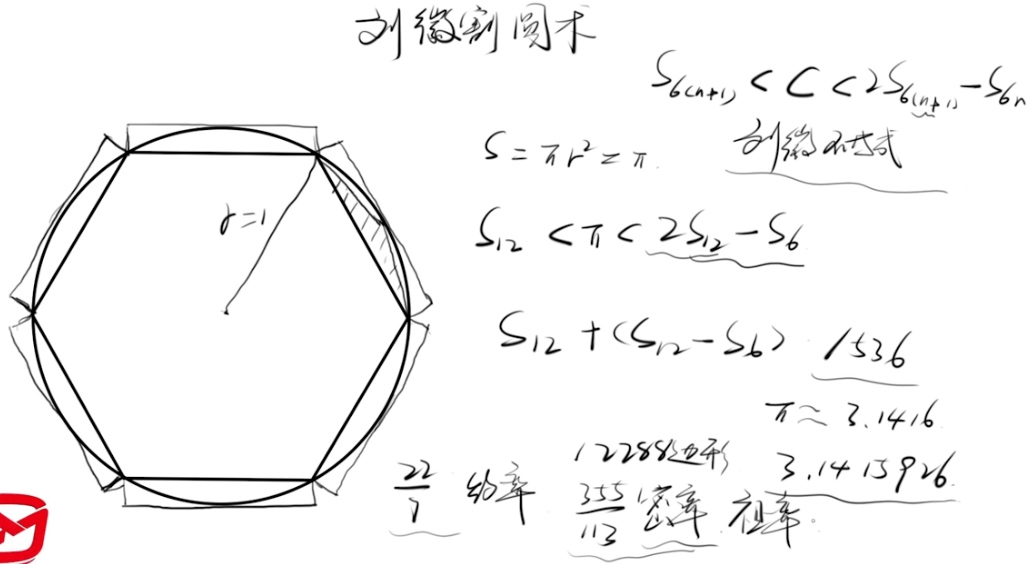 刘徽割圆术
S₆₍ₙ₊₁₎ < C < 2S₆₍ₙ₊₁₎ - S₆ₙ
S = πr² = π.
刘徽不等式
r=1
S₁₂ < π < 2S₁₂ - S₆
S₁₂ + (S₁₂ - S₆)
1536
π ≈ 3.1416
12288边形
3.1415926
22/7 约率
355/113 密率 祖率.